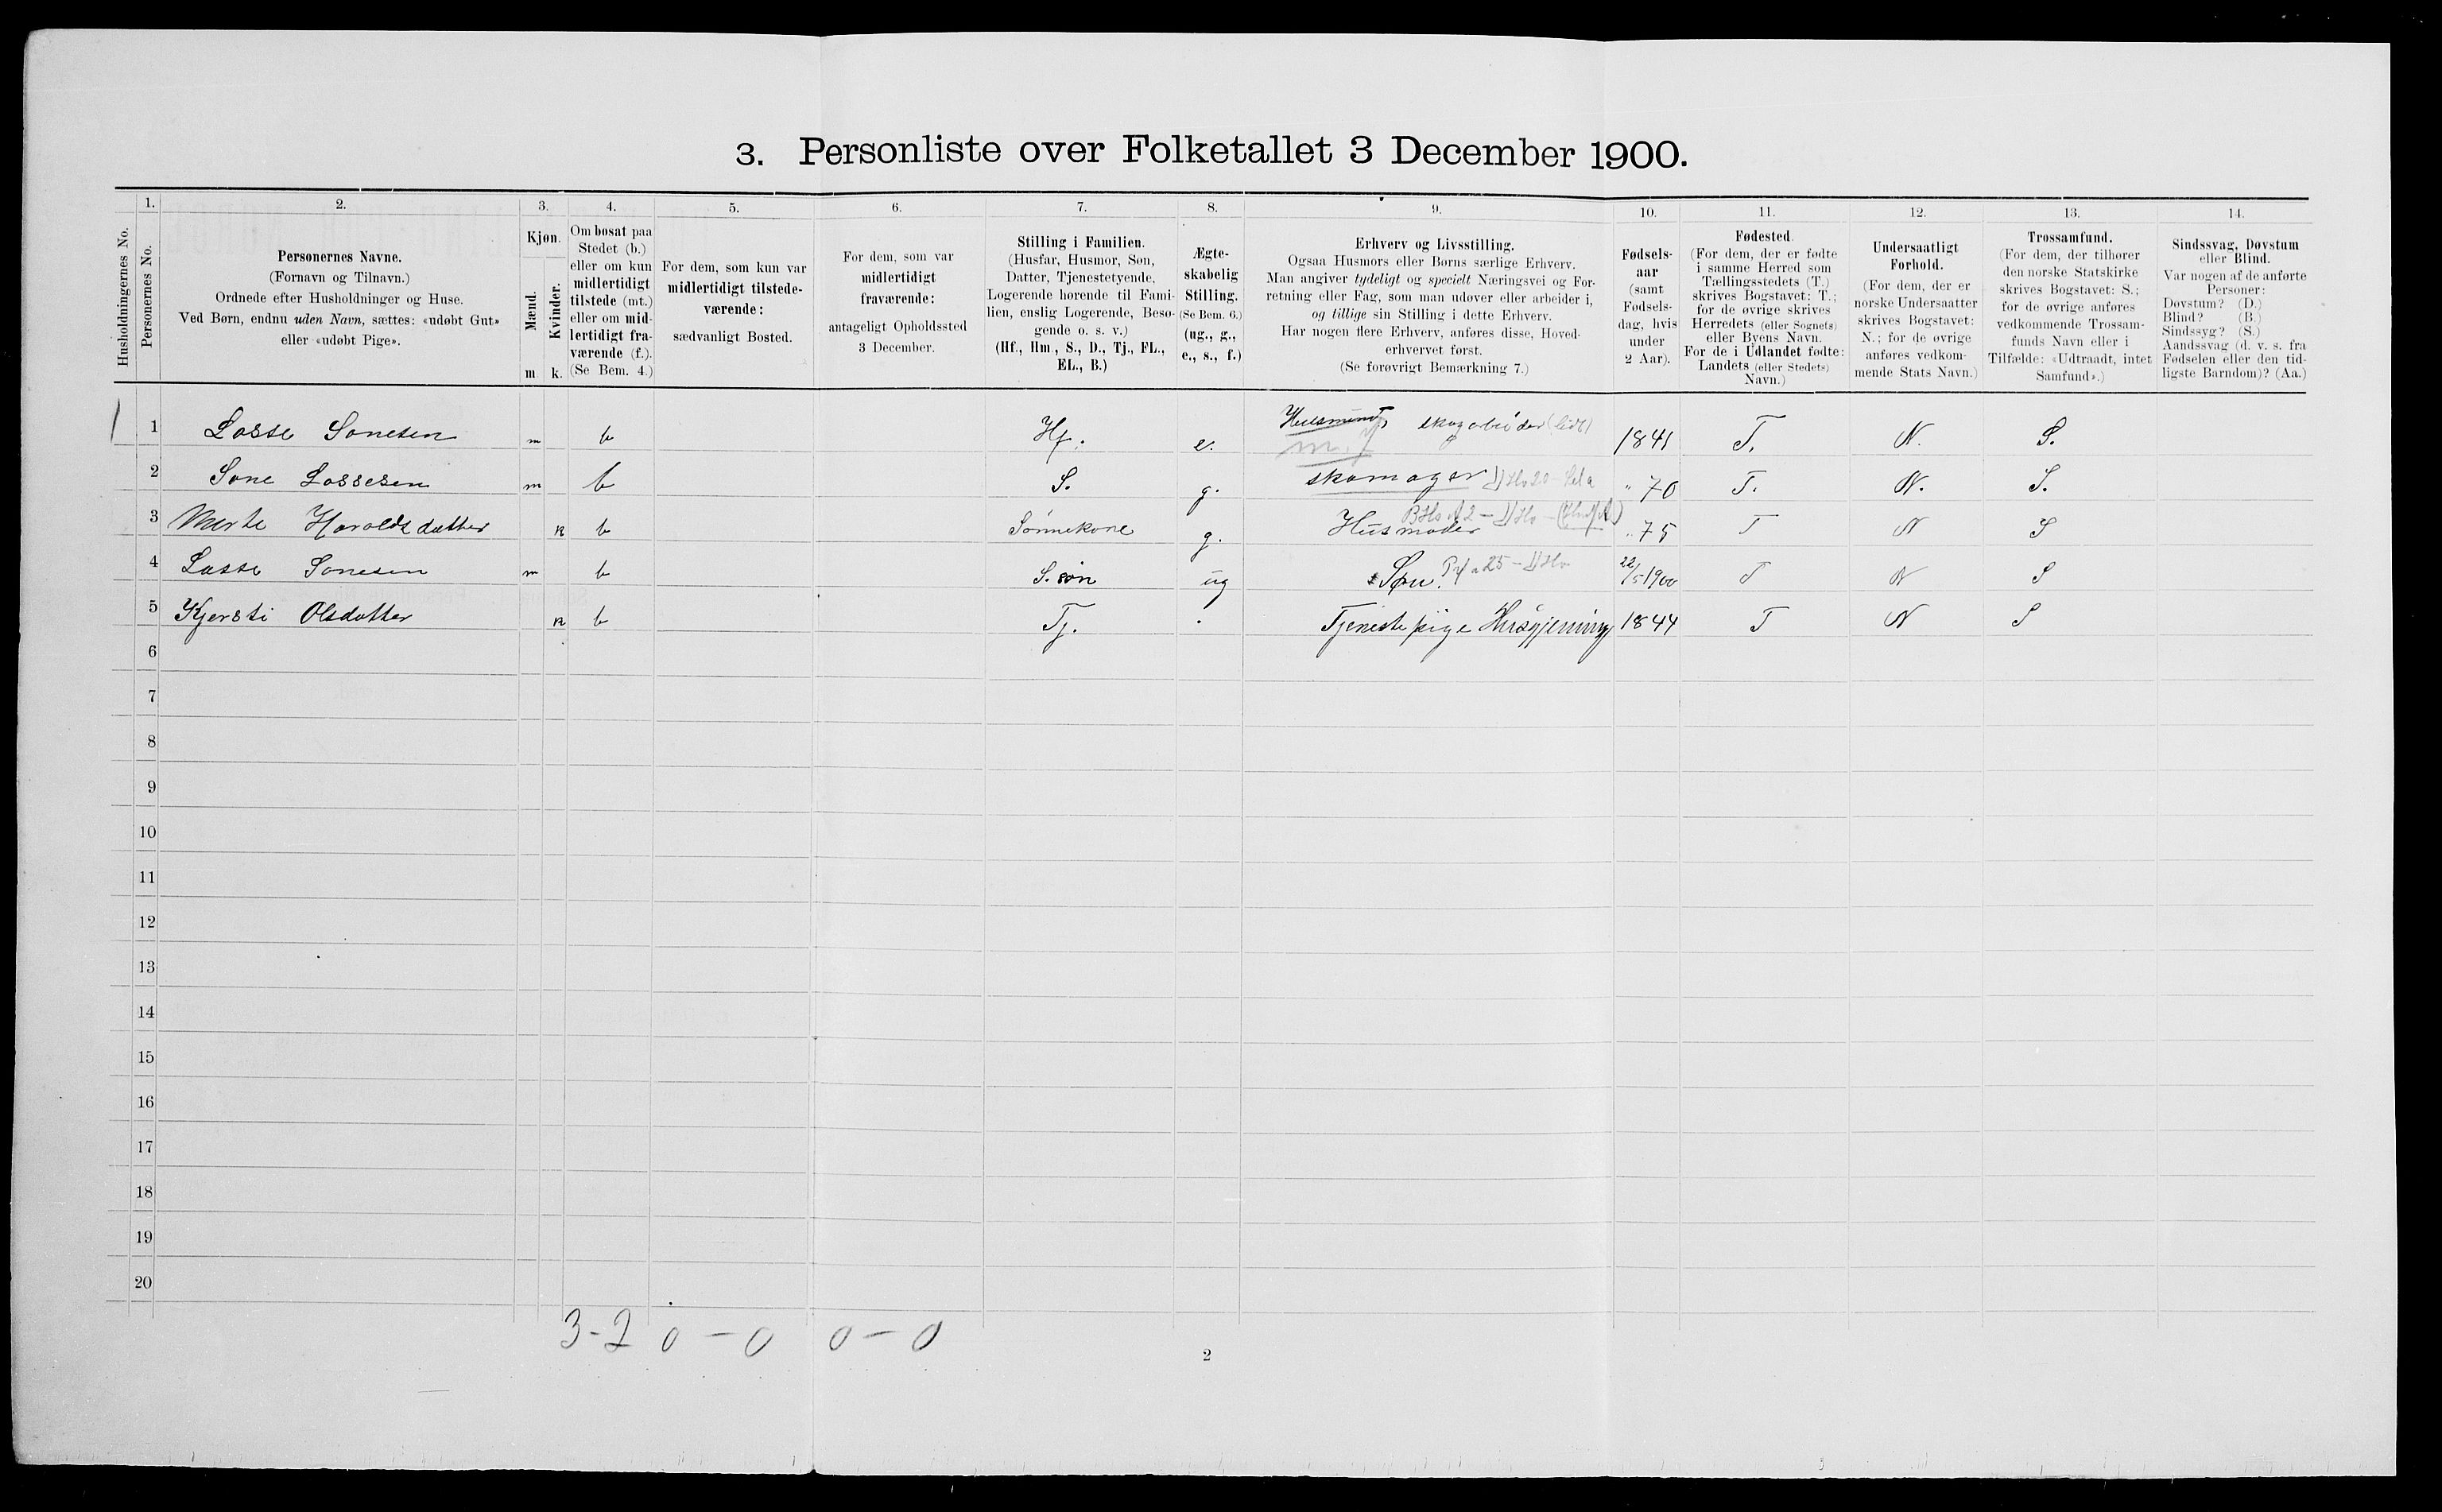 3. Personliste over Folketallet 3 December 1900.
Husholdningernes No.
1. Personernes No.
2. Personernes Navne.
(Fornavn og Tilnavn.)
Ordnede efter Husholdninger og Huse.
Ved Børn, endnu uden Navn, sættes: «udøbt Gut»
eller «udøbt Pige».
3. Kjøn.
Mænd. Kvinder.
m. k.
4. Om bosat paa
Stedet (b.)
eller om kun
midlertidigt
tilstede (mt.)
eller om mid-
lertidigt fra-
værende (f.).
(Se Bem. 4.)
5. For dem, som kun var
midlertidigt tilstede-
værende:
sædvanligt Bosted.
6. For dem, som var
midlertidigt
fraværende:
antageligt Opholdssted
3 December.
7. Stilling i Familien.
(Husfar, Husmor, Søn,
Datter, Tjenestetyende,
Logerende hørende til Fami-
lien, enslig Logerende, Besø-
gende o. s. v.)
(Hf., Hm., S., D., Tj., FL.,
EL., B.)
8. Ægte-
skabelig
Stilling.
(Se Bem. 6.)
(ug., g.,
e., s., f.)
9. Erhverv og Livsstilling.
Ogsaa Husmors eller Børns særlige Erhverv.
Man angiver tydeligt og specielt Næringsvei og For-
retning eller Fag, som man udøver eller arbeider i,
og tillige sin Stilling i dette Erhverv.
Har nogen flere Erhverv, anføres disse, Hoved-
erhvervet først.
(Se forøvrigt Bemærkning 7.)
10. Fødsels-
aar
(samt
Fødsels-
dag, hvis
under
2 Aar).
11. Fødested.
(For dem, der er fødte
i samme Herred som
Tællingsstedets (T.)
skrives Bogstavet: T.;
for de øvrige skrives
Herredets (eller Sognets)
eller Byens Navn.
For de i Udlandet fødte:
Landets (eller Stedets)
Navn.)
12. Undersaatligt
Forhold.
(For dem, der er
norske Undersaatter
skrives Bogstavet:
N.; for de øvrige
anføres vedkom-
mende Stats Navn.)
13. Trossamfund.
(For dem, der tilhører
den norske Statskirke
skrives Bogstavet: S.;
for de øvrige anføres
vedkommende Trossam-
funds Navn eller i
Tilfælde: «Udtraadt, intet
Samfund».)
14. Sindssvag, Døvstum
eller Blind.
Var nogen af de anførte
Personer:
Døvstum? (D.)
Blind? (B.)
Sindssyg? (S.)
Aandssvag (d. v. s. fra
Fødselen eller den tid-
ligste Barndom)? (Aa.)
1 Lasse Sonesen m b Hf. e. Husmand, skogarbeider (lidt) 1841 T. N. S.
2 Sone Lassesen m b S. g. skomager " 70 T. N. S.
3 Marte Haroldsdatter k b Sønnekone g. Husmoder " 75 T N S
4 Lasse Sonesen m b S. søn ug Søn. 22/5 1900 T N S
5 Kjersti Olsdatter k b Tj. Tjenestepige Husgjerning 1844 T N S
6
7
8
9
10
11
12
13
14
15
16
17
18
19
20
3-2 0-0 0-0
2